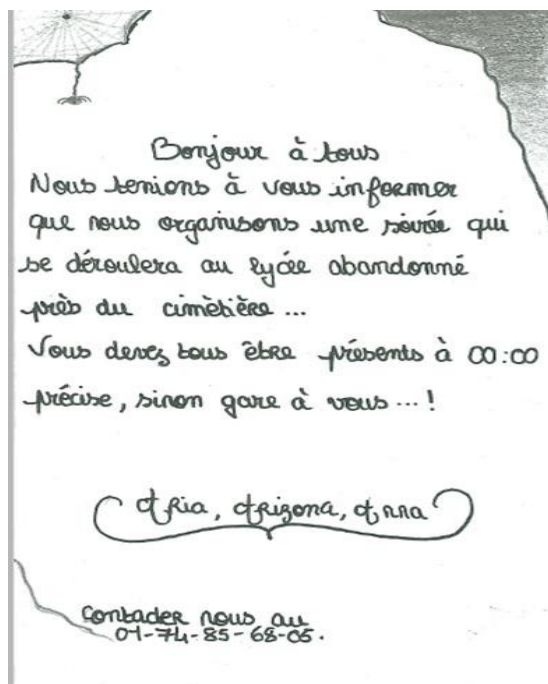 Bonjour à tous
Nous tenions à vous informer
que nous organisons une soirée qui
se déroulera au lycée abandonné
près du cimètière ...
Vous devez tous être présents à 00:00
précise, sinon gare à vous ... !
Aria, Arizona, Anna
Contacter nous au
01-74-85-68-05.